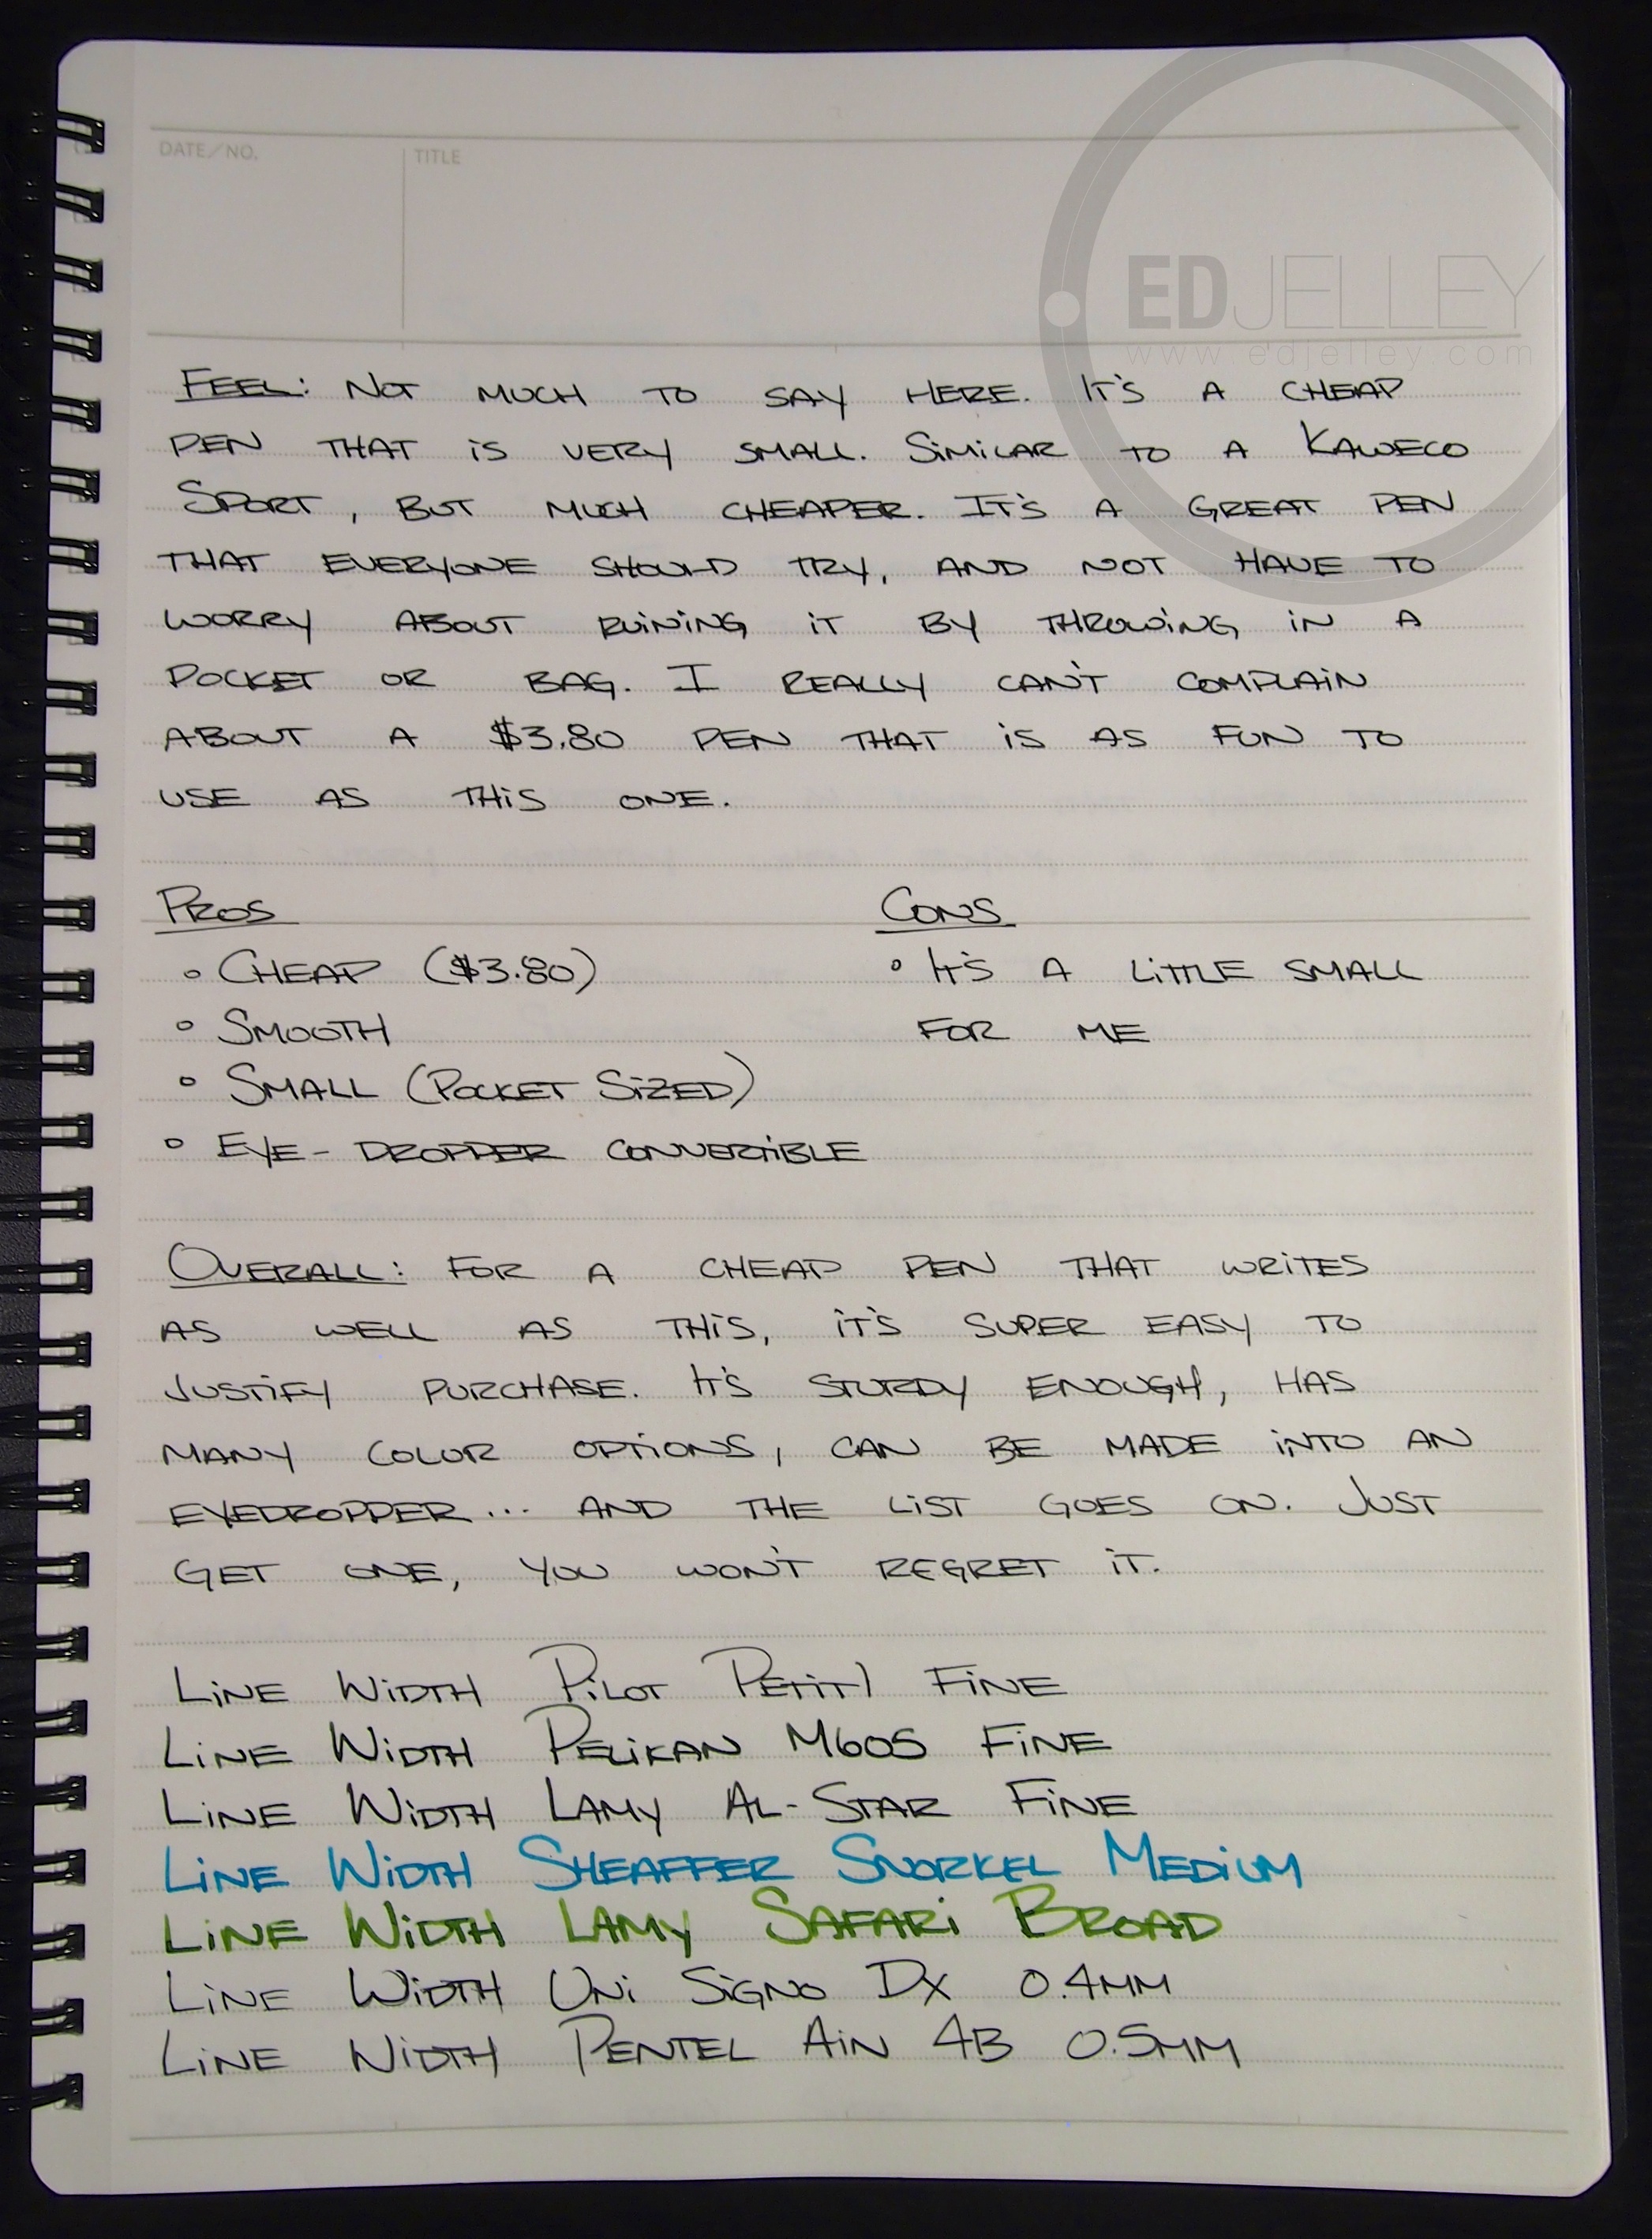 DATE/NO. TITLE
EDJELLEY
www.edjelley.com
FEEL: NOT MUCH TO SAY HERE. IT'S A CHEAP
PEN THAT IS VERY SMALL. SIMILAR TO A KAWECO
SPORT, BUT MUCH CHEAPER. IT'S A GREAT PEN
THAT EVERYONE SHOULD TRY, AND NOT HAVE TO
WORRY ABOUT RUINING IT BY THROWING IN A
POCKET OR BAG. I REALLY CAN'T COMPLAIN
ABOUT A $3.80 PEN THAT IS AS FUN TO
USE AS THIS ONE.
PROS CONS
• CHEAP ($3.80) • IT'S A LITTLE SMALL
• SMOOTH FOR ME
• SMALL (POCKET SIZED)
• EYE-DROPPER CONVERTIBLE
OVERALL: FOR A CHEAP PEN THAT WRITES
AS WELL AS THIS, IT'S SUPER EASY TO
JUSTIFY PURCHASE. IT'S STURDY ENOUGH, HAS
MANY COLOR OPTIONS, CAN BE MADE INTO AN
EYEDROPPER... AND THE LIST GOES ON. JUST
GET ONE, YOU WON'T REGRET IT.
LINE WIDTH PILOT PETIT1 FINE
LINE WIDTH PELIKAN M605 FINE
LINE WIDTH LAMY AL-STAR FINE
LINE WIDTH SHEAFFER SNORKEL MEDIUM
LINE WIDTH LAMY SAFARI BROAD
LINE WIDTH UNI SIGNO DX 0.4MM
LINE WIDTH PENTEL AIN 4B 0.5MM